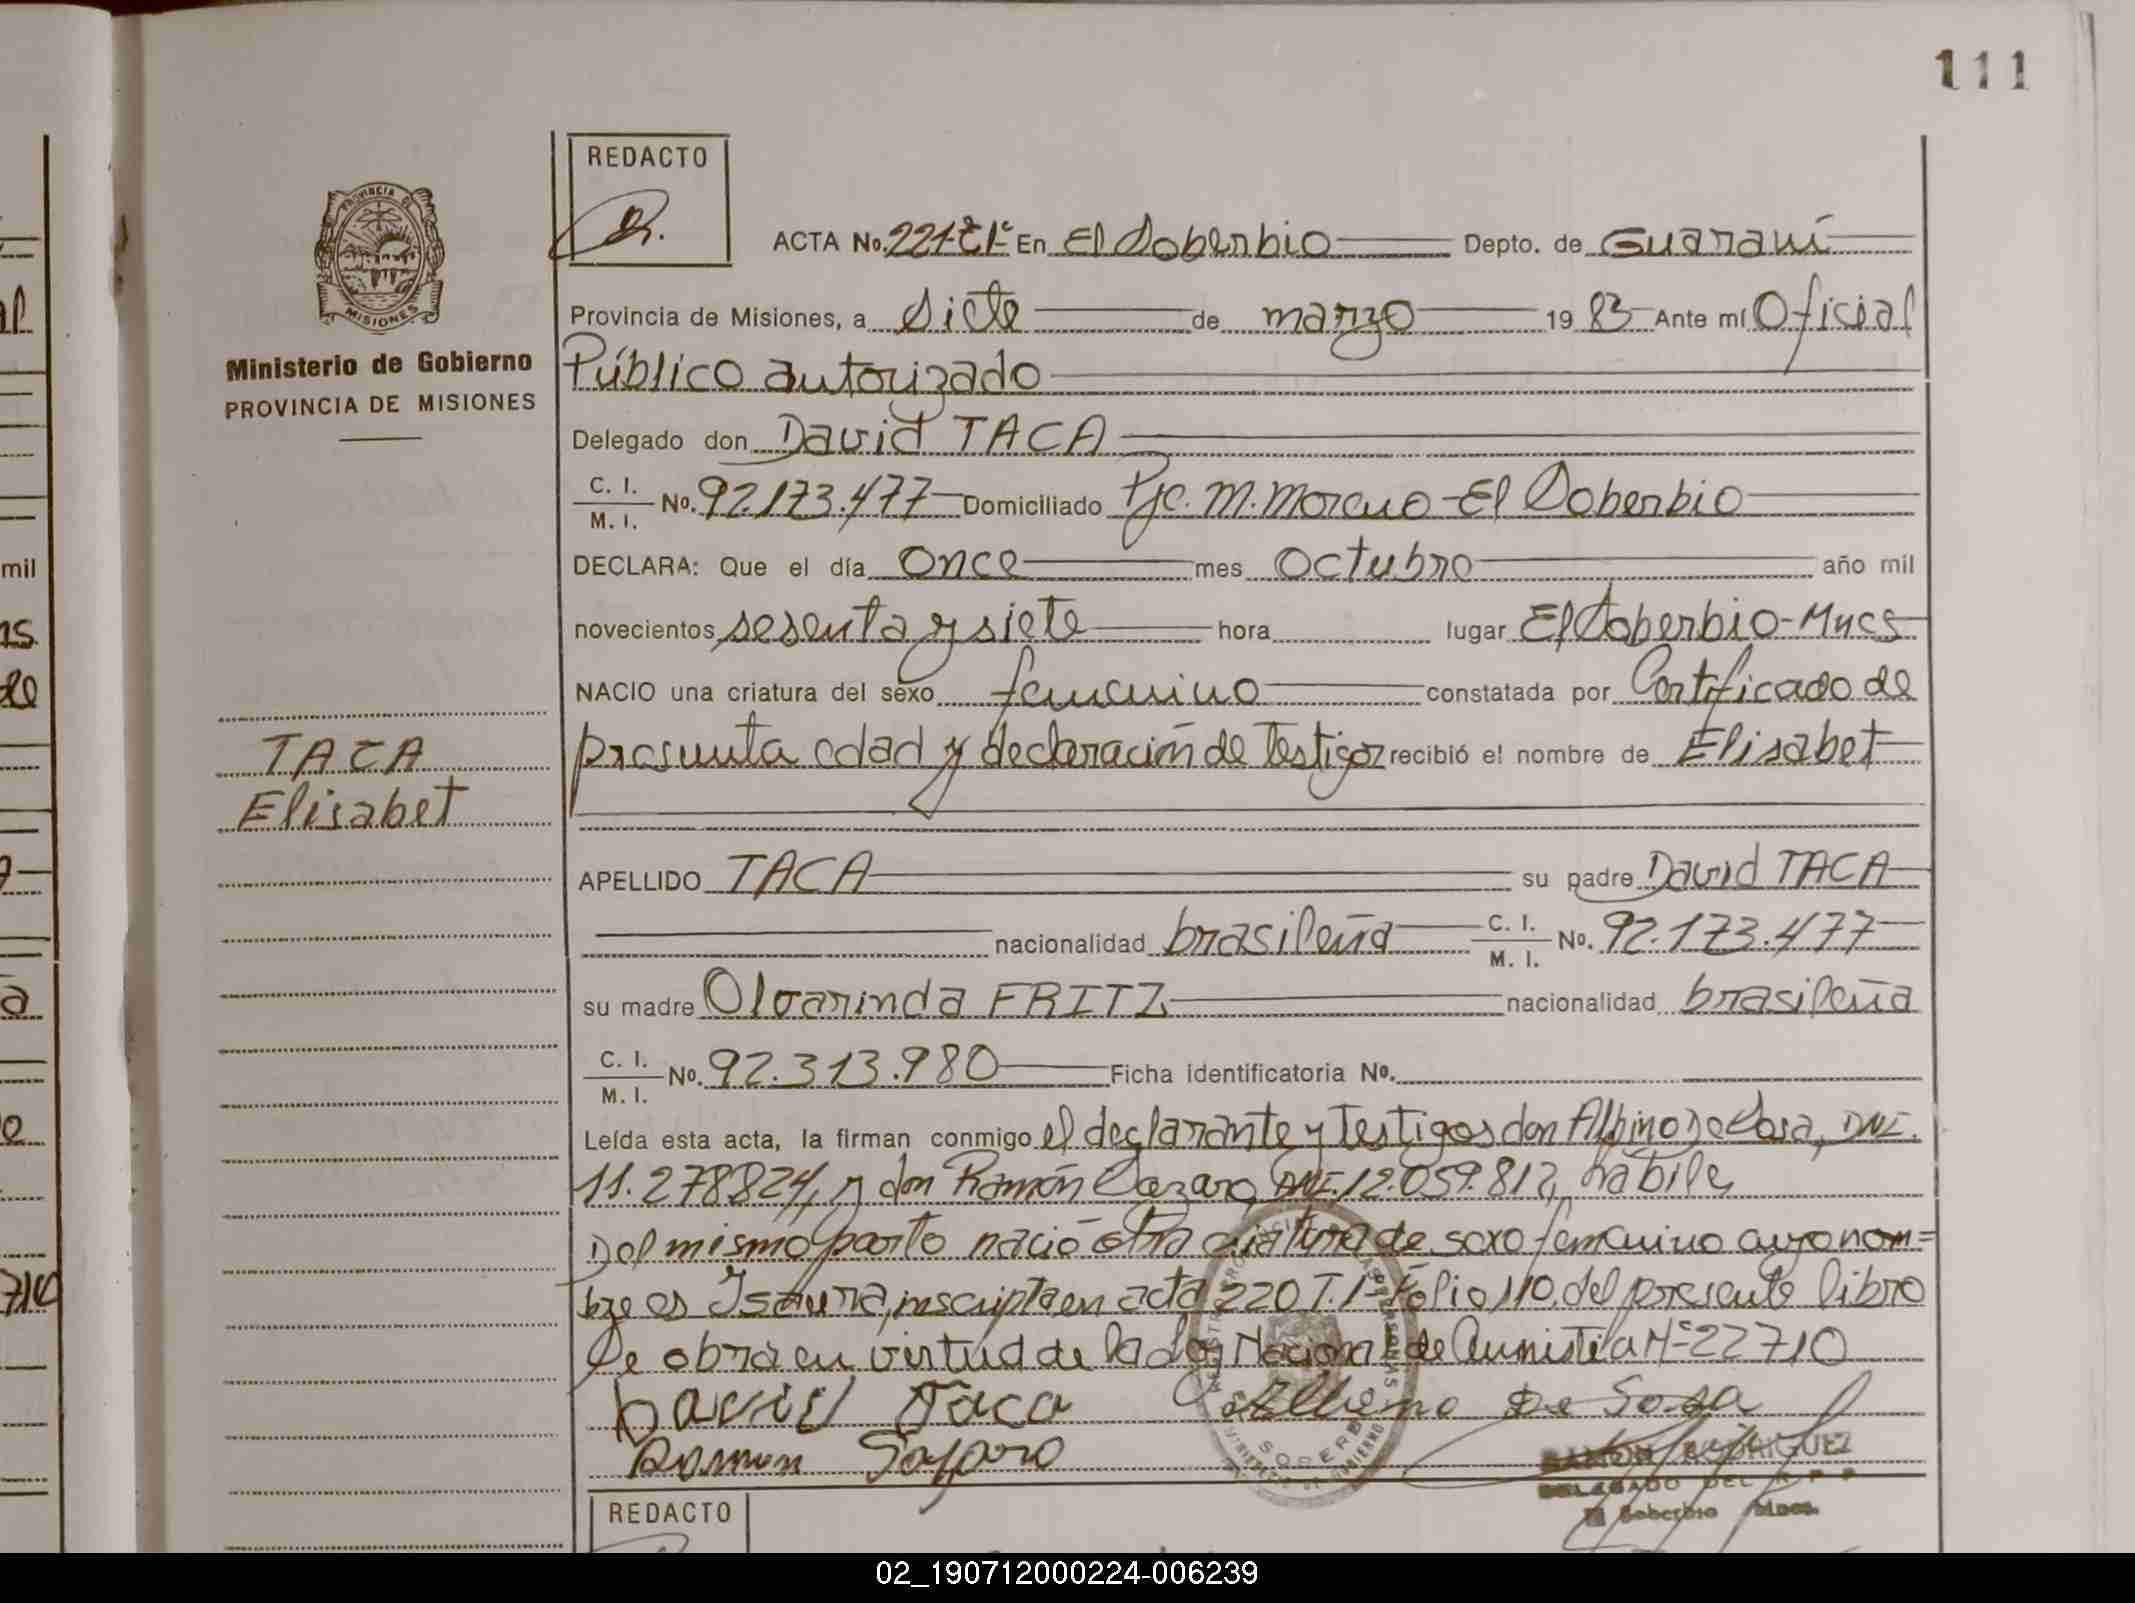 111
REDACTO
ACTA No. 221-T1º- En El Soberbio Depto. de Guaraní
Provincia de Misiones, a Siete de marzo 19 83 Ante mí Oficial
Público autorizado
Ministerio de Gobierno
PROVINCIA DE MISIONES
Delegado don David TACA
C. I. M. I. No. 92.173.477 Domiciliado Pje. M. Moreno - El Soberbio
DECLARA: Que el día once mes octubre año mil
novecientos sesenta y siete hora lugar El Soberbio - Mnes
NACIO una criatura del sexo femenino constatada por Certificado de
presunta edad y declaración de testigos recibió el nombre de Elisabet
TACA
Elisabet
APELLIDO TACA su padre David TACA
nacionalidad brasileña C. I. M. I. No. 92.173.477
su madre Olvarinda FRITZ nacionalidad brasileña
C. I. M. I. No. 92.313.980 Ficha identificatoria No.
Leída esta acta, la firman conmigo el declarante y testigos don Albino De Sosa, DNI.
11.278824, y don Ramón Lazaro, DNI. 12.059.812, habiles
Del mismo parto nació otra criatura de sexo femenino cuyo nom=
bre es Isaura, inscripta en acta 220 T. 1º Folio 110, del presente libro
Se obra en virtud de la Ley Nacional de Amnistía Nº 22710
David Taca Albino De Sosa
Ramon Lasaro
RAMON RODRIGUEZ
DELEGADO DEL R P P
El Soberbio Mnes.
REDACTO
02_190712000224-006239